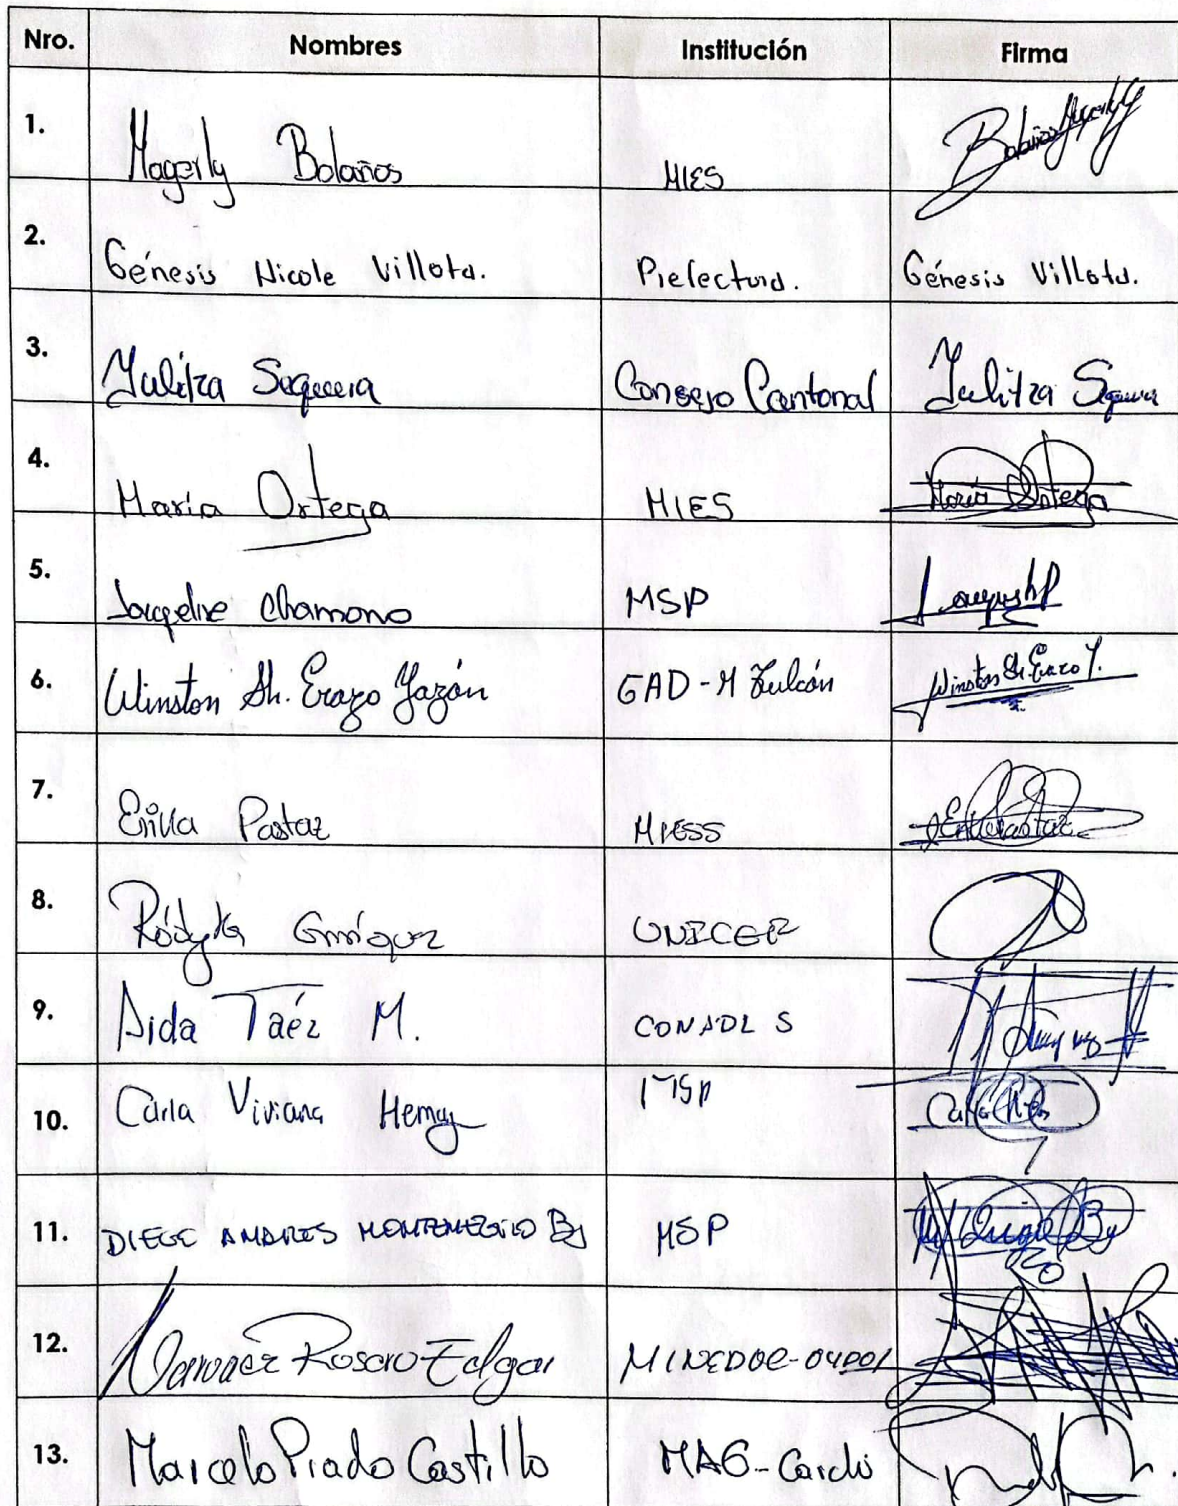 Nro. Nombres Institución Firma
1. Magerly Bolaños MIES Bolaños Magerly
2. Génesis Nicole Villota. Prefectura. Génesis Villota.
3. Yulitza Sequera Consejo Cantonal Yulitza
4. María Ortega MIES María Ortega
5. Jacqueline Chamorro MSP
6. Winston Sh. Erazo Yazán GAD-M Tulcán Winston Sh. Erazo Y.
7. Erika Pastaz MIESS Erika Pastaz
8. UNICEF
9. Aida Taéz M. CONADIS
10. Carla Viviana MSP Carla
11. DIEGO ANDRES MONTENEGRO MSP
12. Rosero Edgar MINEDUC-04D01
13. Marcelo Prado Castillo MAG-Carchi